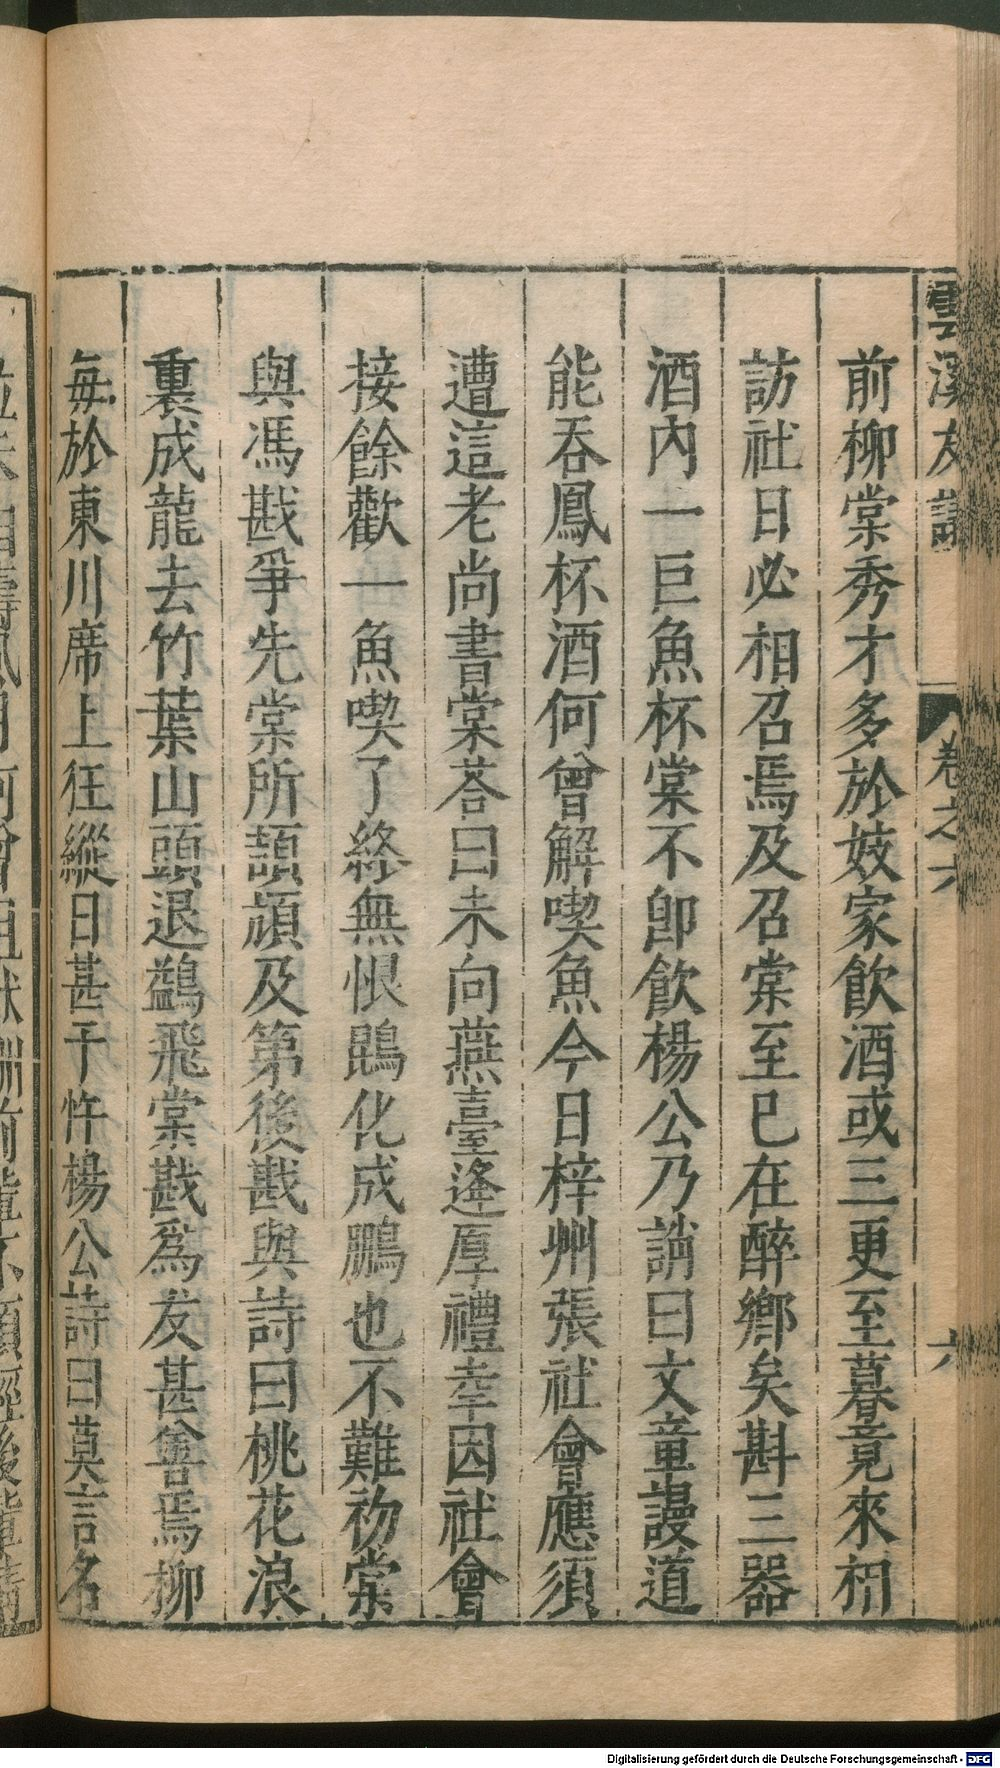 雲溪友議
卷之六
六
前柳棠秀才多於妓家飲酒或三更至暮竟來相
訪社日必相召焉及召棠至已在醉鄉矣斟三器
酒內一巨魚杯棠不即飲楊公乃誚曰文章謾道
能吞鳳杯酒何曾解喫魚今日梓州張社會應須
遭這老尚書棠荅曰未向燕臺逢厚禮幸因社會
接餘歡一魚喫了終無恨鵾化成鵬也不難初棠
與馮戡爭先棠所頡頏及第後戡與詩曰桃花浪
裏成龍去竹葉山頭退鷁飛棠戡爲友甚善焉柳
每於東川席上狂縱日甚干忤楊公詩曰莫言名
Digitalisierung gefördert durch die Deutsche Forschungsgemeinschaft - DFG